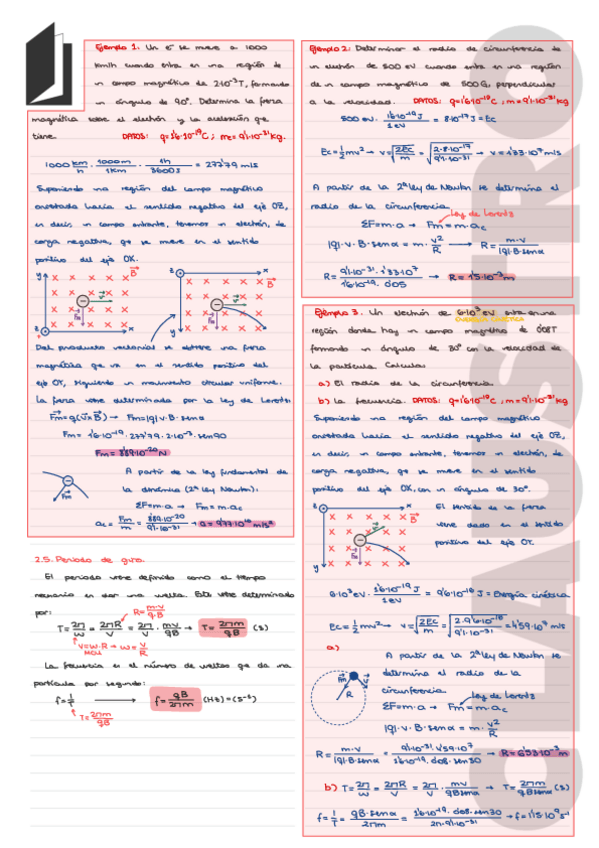 Ejemplo 1. Un e⁻ se mueve a 1000
km/h cuando entra en una región de
un campo magnético de 2·10⁻³T, formando
un ángulo de 90º. Determina la fuerza
magnética sobre el electrón y la aceleración que
tiene. DATOS: q=1'6·10⁻¹⁹C; me=9'1·10⁻³¹Kg.
1000 km/h · 1000m/1Km · 1h/3600s = 277'79 m/s
Suponiendo una región del campo magnético
orientada hacia el sentido negativo del eje OZ,
es decir, un campo entrante, tenemos un electrón, de
carga negativa, q⁺ se mueve en el sentido
positivo del eje OX.
y x B v Fm z
z x B v Fm y
Del producto vectorial se obtiene una fuerza
magnética que va en el sentido positivo del
eje OY, siguiendo un movimiento circular uniforme.
La fuerza viene determinada por la ley de Lorentz:
Fm=q(v×B) → Fm=|q|·v·B·senα
Fm= 1'6·10⁻¹⁹·277'79·2·10⁻³·sen90
Fm= 8'89·10⁻²⁰ N
v Fm
A partir de la ley fundamental de
la dinámica (2ª ley Newton):
ΣF=m·a → Fm=m·ac
ac= Fm/m = 8'89·10⁻²⁰/9'1·10⁻³¹ → a=9'77·10¹⁰ m/s²
2.5. Periodo de giro.
El periodo viene definido como el tiempo
necesario en dar una vuelta. Este viene determinado
por: R= m·v/q·B
T= 2π/ω = 2πR/v = 2π/v · mv/qB → T= 2πm/qB (s)
v=ω·R → ω= v/R
MCU
La frecuencia es el número de vueltas que da una
partícula por segundo:
f= 1/T → f= qB/2πm (Hz)=(s⁻¹)
T= 2πm/qB
Ejemplo 2: Determinar el radio de circunferencia de
un electrón de 500 eV cuando entra en una región
de un campo magnético de 500G, perpendicular
a la velocidad. DATOS: q=1'6·10⁻¹⁹C; m=9'1·10⁻³¹Kg
500 eV · 1'6·10⁻¹⁹J/1eV = 8·10⁻¹⁷J = Ec
Ec= 1/2 mv² → v= √2Ec/m = √2·8·10⁻¹⁷/9'1·10⁻³¹ → v=1'33·10⁷ m/s
A partir de la 2ª ley de Newton se determina el
radio de la circunferencia.
Ley de Lorentz
ΣF=m·a → Fm=m·ac
|q|·v·B·senα = m· v²/R → R= m·v/|q|·B·senα
R= 9'1·10⁻³¹·1'33·10⁷/1'6·10⁻¹⁹·0'05 → R=1'5·10⁻³ m
Ejemplo 3. Un electrón de 6·10³ eV entra en una
ENERGÍA CINÉTICA
región donde hay un campo magnético de 0'08T
formando un ángulo de 30º con la velocidad de
la partícula. Calcular:
a) El radio de la circunferencia.
b) La frecuencia. DATOS: q=1'6·10⁻¹⁹C; m=9'1·10⁻³¹Kg
Suponiendo una región del campo magnético
orientada hacia el sentido negativo del eje OZ,
es decir, un campo entrante, tenemos un electrón, de
carga negativa, q⁺ se mueve en el sentido
positivo del eje OX, con un ángulo de 30º.
z x B v Fm y
El sentido de la fuerza
viene dado en el sentido
positivo del eje OY.
6·10³eV · 1'6·10⁻¹⁹J/1eV = 9'6·10⁻¹⁶ J = Energía cinética
Ec= 1/2 mv² → v= √2Ec/m = √2·9'6·10⁻¹⁶/9'1·10⁻³¹ = 4'59·10⁷ m/s
a)
Fm v R
A partir de la 2ª ley de Newton se
determina el radio de la
circunferencia.
Ley de Lorentz
ΣF=m·a → Fm=m·ac
|q|·v·B·senα = m· v²/R
R= m·v/|q|·B·senα = 9'1·10⁻³¹·4'59·10⁷/1'6·10⁻¹⁹·0'08·sen30 → R=6'53·10⁻³ m
b) T= 2π/ω = 2πR/v = 2π/v · mv/qBsenα → T= 2πm/qBsenα (s)
f= 1/T = qB·senα/2πm = 1'6·10⁻¹⁹·0'08·sen30/2π·9'1·10⁻³¹ → f=1'15·10⁹ s⁻¹
CLAUSTRO